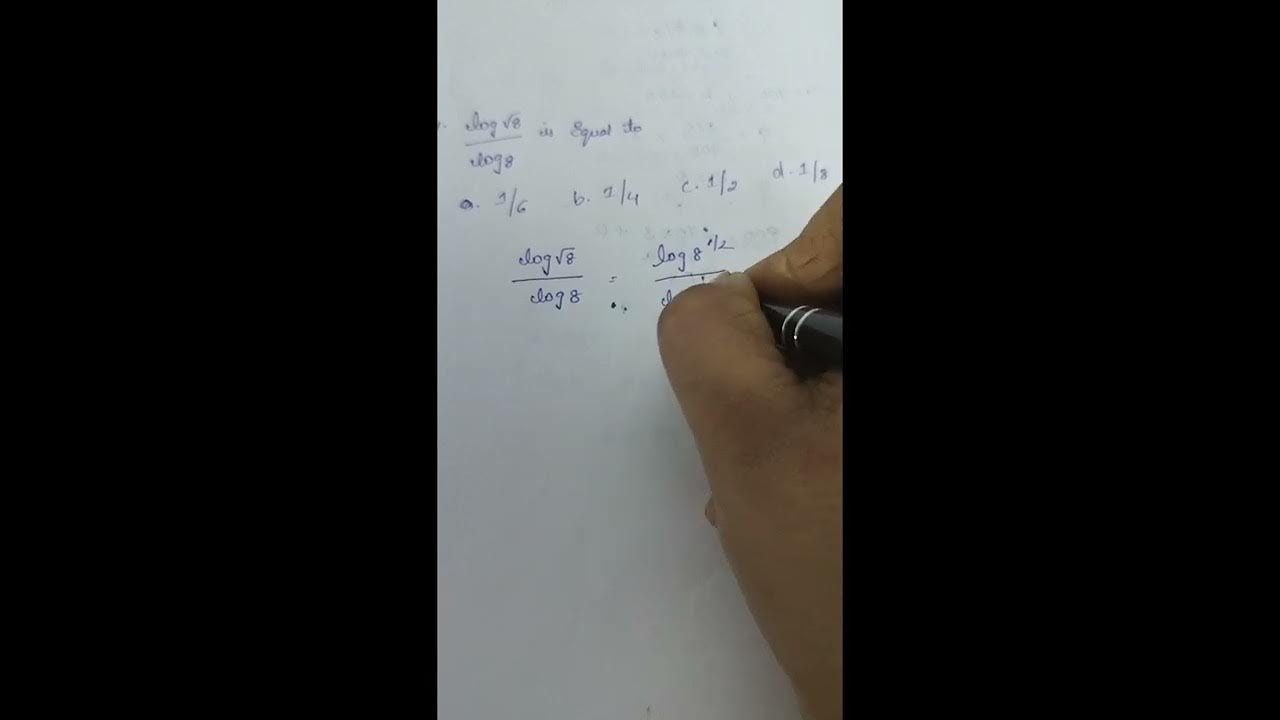 log√8 / log8 is Equal to
a. 1/6 b. 1/4 c. 1/2 d. 1/8
log√8 / log8 = log8^1/2